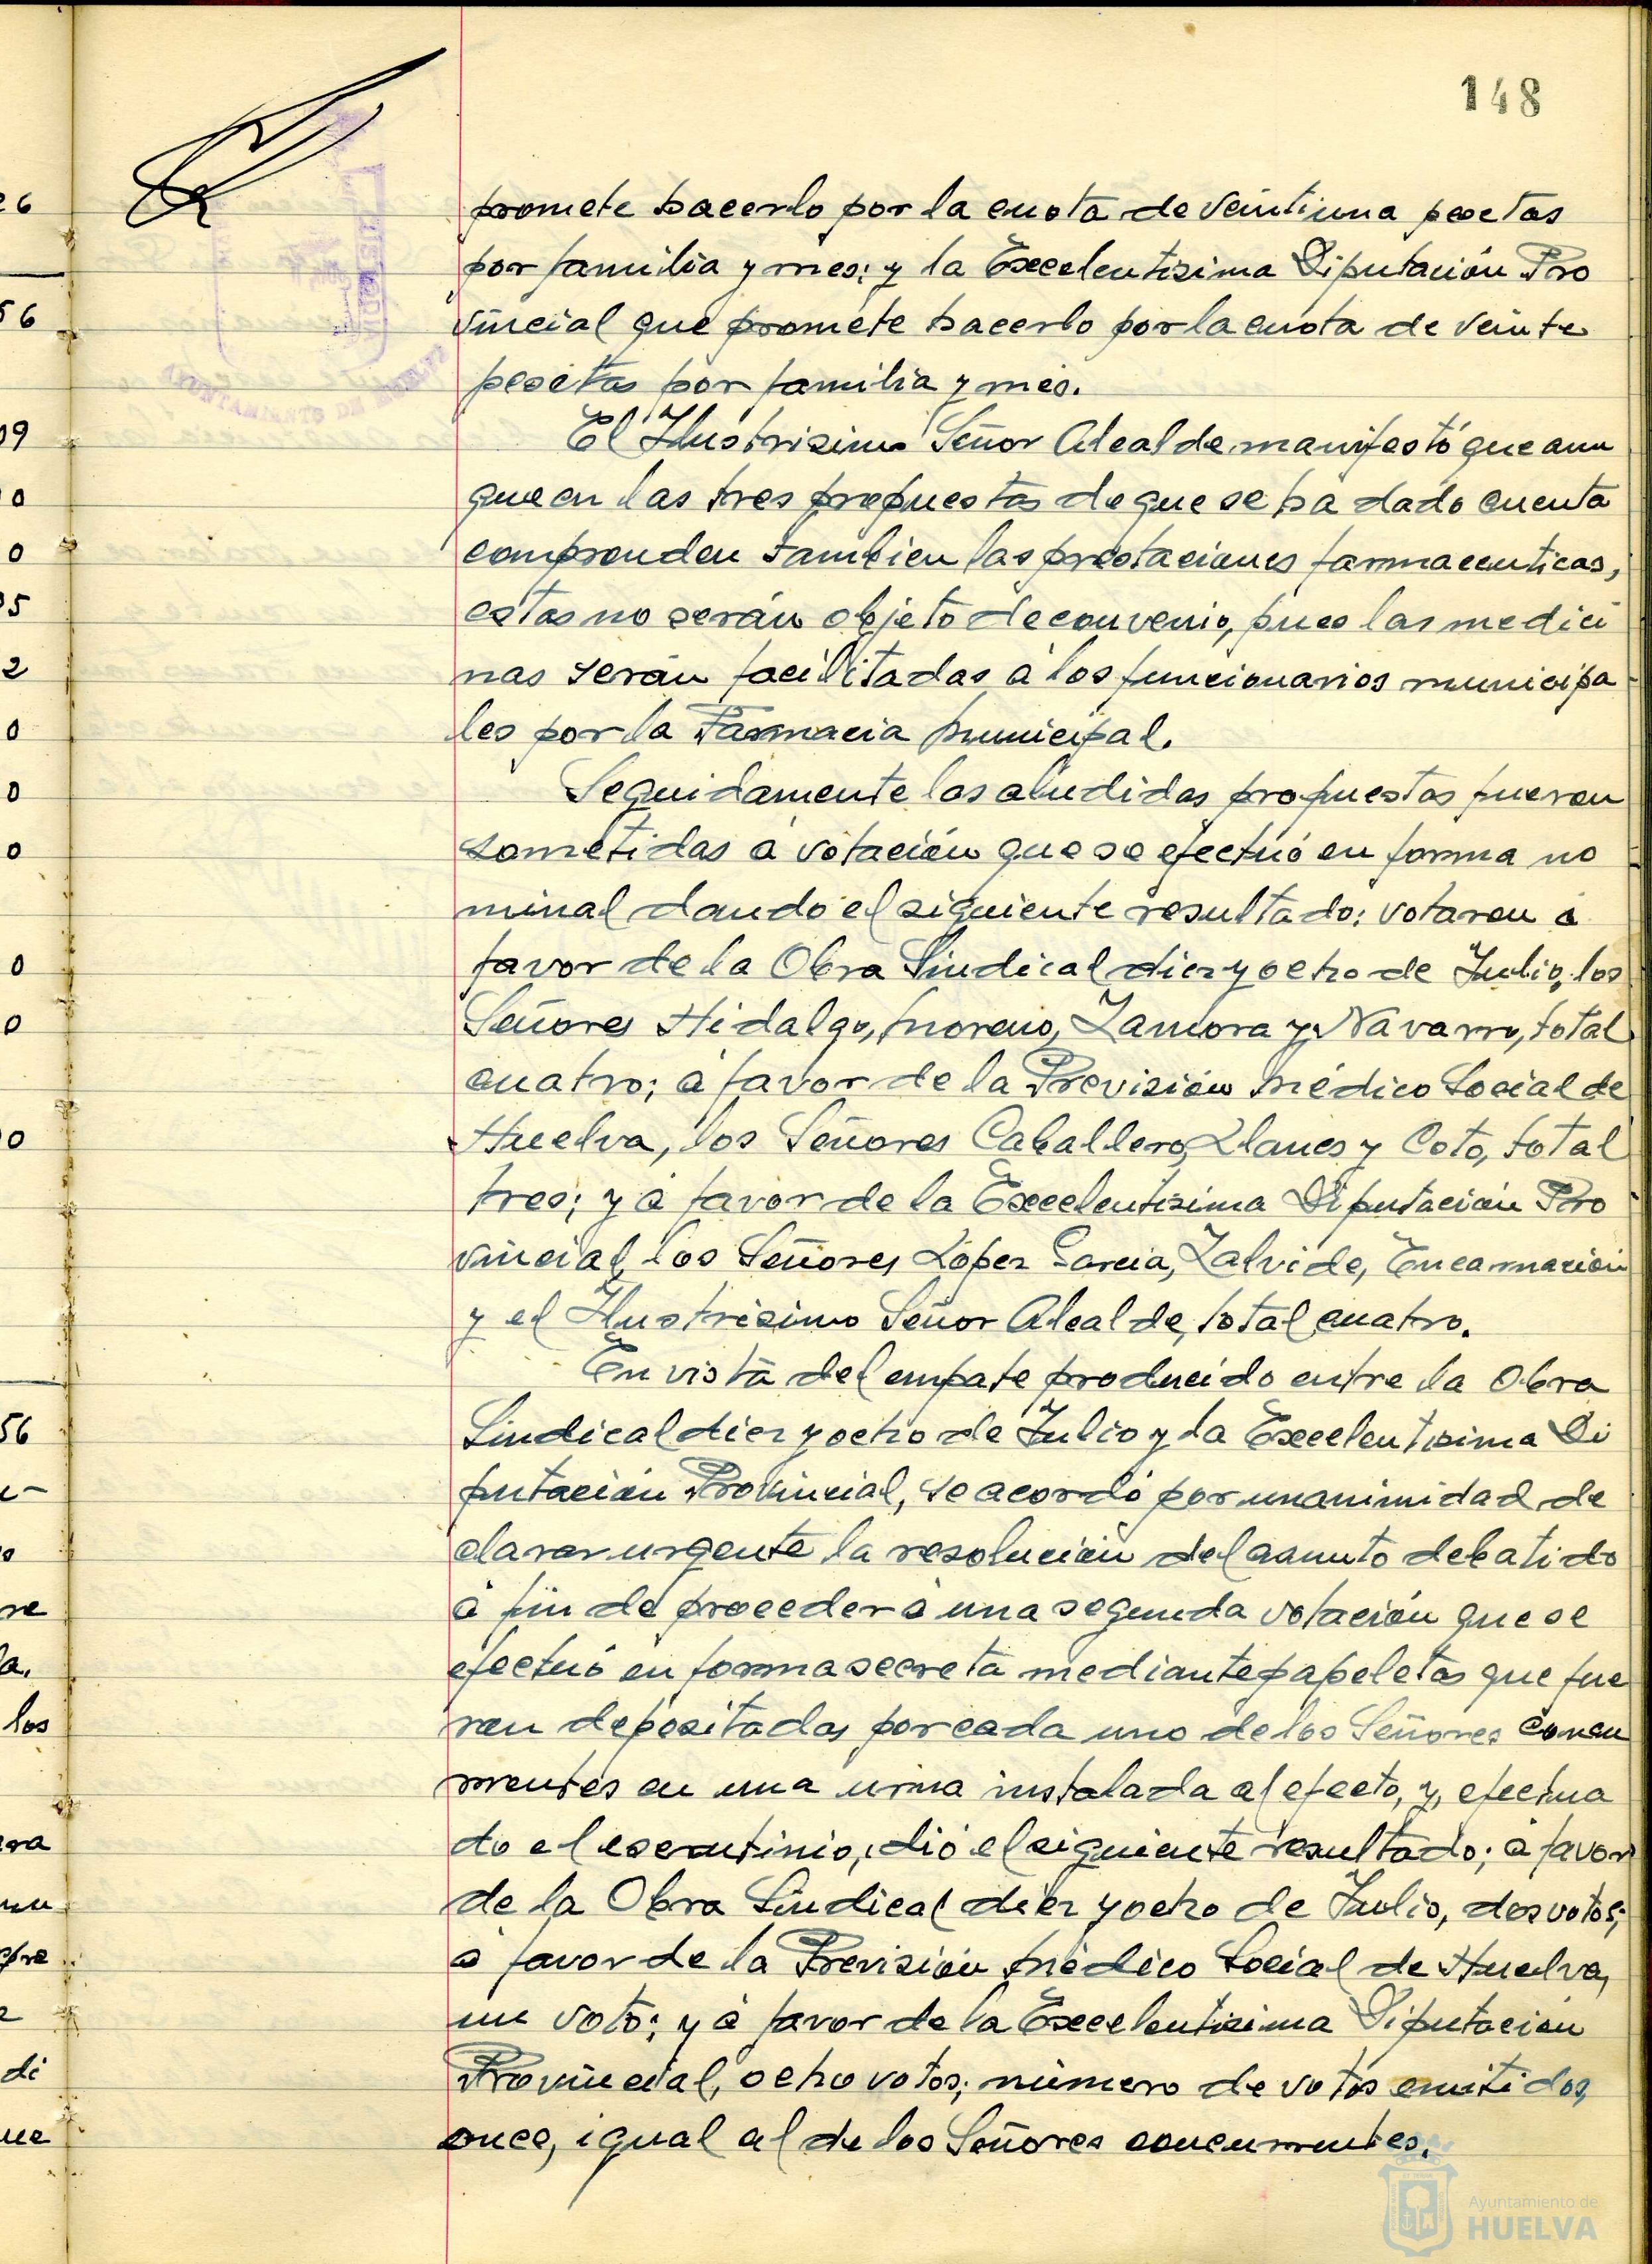 148
promete hacerlo por la cuota de veintiuna pesetas
por familia y mes; y la Excelentisima Diputación Pro
vincial que promete hacerlo por la cuota de veinte
pesetas por familia y mes.
El Ilustrisimo Señor Alcalde manifestó que aun
que en las tres propuestas de que se ha dado cuenta
comprenden tambien las prestaciones farmaceuticas,
estas no serán objeto de convenio, pues las medici
nas serán facilitadas á los funcionarios municipa
les por la Farmacia Municipal.
Seguidamente las aludidas propuestas fueron
sometidas á votación que se efectuó en forma no
minal dando el siguiente resultado: votaron á
favor de la Obra Sindical diez y ocho de Julio, los
Señores Hidalgo, Moreno, Zamora y Navarro, total
cuatro; á favor de la Previsión Médico Social de
Huelva, los Señores Caballero, Llanes y Coto, total
tres; y á favor de la Excelentisima Diputación Pro
vincial, los Señores López Garcia, Zalvide, Encarnación
y el Ilustrisimo Señor Alcalde, total cuatro.
En vista del empate producido entre la Obra
Sindical diez y ocho de Julio y la Excelentisima Di
putación Provincial, se acordó por unanimidad de
clarar urgente la resolución del asunto debatido
á fin de proceder á una segunda votación que se
efectuó en forma secreta mediante papeletas que fue
ron depositadas por cada uno de los Señores concu
rrentes en una urna instalada al efecto, y, efectua
do el escrutinio, dió el siguiente resultado; á favor
de la Obra Sindical diez y ocho de Julio, dos votos;
á favor de la Previsión Médico Social de Huelva,
un voto; y á favor de la Excelentisima Diputación
Provincial, ocho votos; número de votos emitidos,
once, igual al de los Señores concurrentes.
AYUNTAMIENTO DE HUELVA
Ayuntamiento de
HUELVA